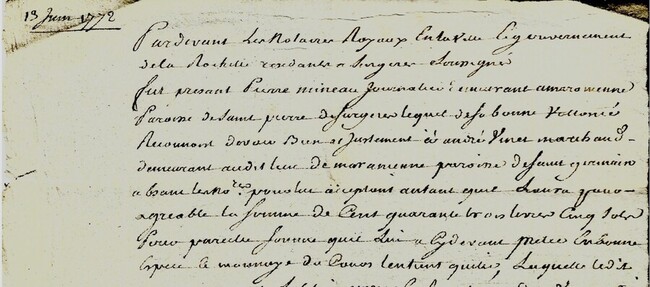 13 Juin 1772
Pardevant Les Notaires Royaux En la ville Et gouvernement
de la Rochelle residants a Surgeres Soussignes
fut present Pierre mineau Journalier demeurant a maranenne
Paroisse de saint pierre de surgeres lequel de sa bonne Vollonté
Reconnoit devoir Bien et Justement à andré Vinet marchand
demeurant audit lieu de maranenne paroisse de saint germain
absant les No.res pour lui acceptans autant quil Laura pour
agreable la somme de Cent quarante trois livres Cinq sols
Pour pareille somme quil Lui a Cydevant Pretée En bonne
Espece Et monnoye du Cours Laquelle ledit